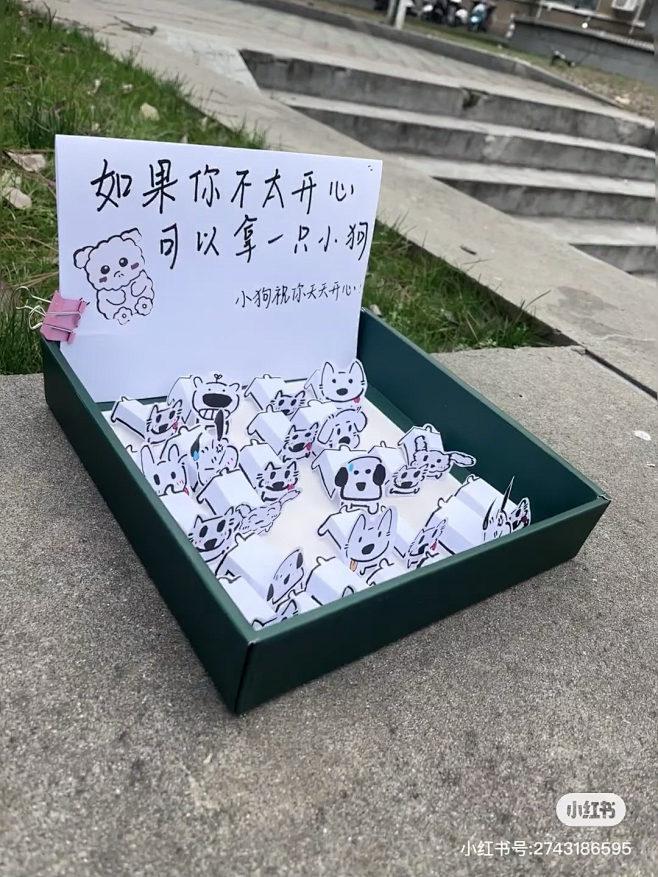 如果你不太开心
可以拿一只小狗
小狗祝你天天开心
小红书
小红书号:2743186595